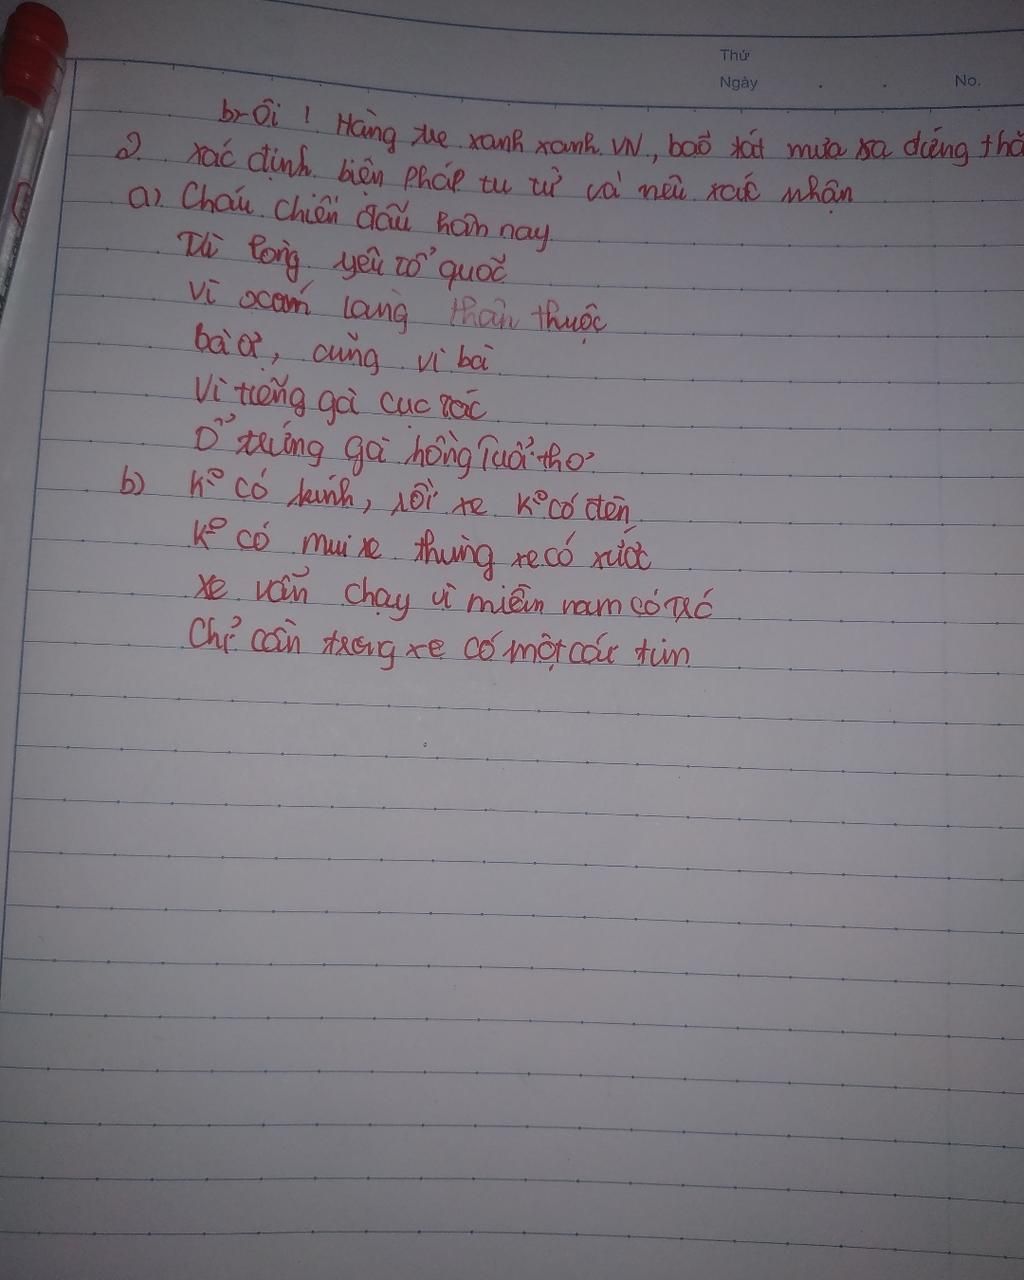 Thứ
Ngày . . No.
b, Ôi ! Hàng tre xanh xanh VN, bão táp mưa sa đứng thẳ
2. xác định biện pháp tu từ và nêu xác nhận
a). Cháu chiến đấu hôm nay
Vì lòng yêu tổ quốc
Vì xóm làng thân thuộc
bà ơi, cũng vì bà
Vì tiếng gà cục tác
Ổ trứng gà hồng tuổi thơ
b) Kº có kính, rồi xe Kº có đèn
Kº có mui xe thùng xe có xước
xe vẫn chạy vì miền nam
Chỉ cần trong xe có một trái tim